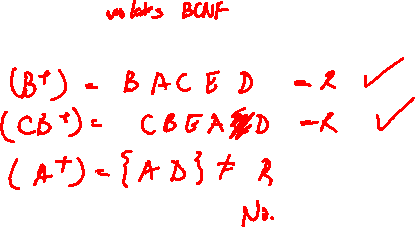 violates BCNF
(B⁺) = B A C E D = R ✓
(CB⁺) = C B E A D = R ✓
(A⁺) = {A D} ≠ R
No.